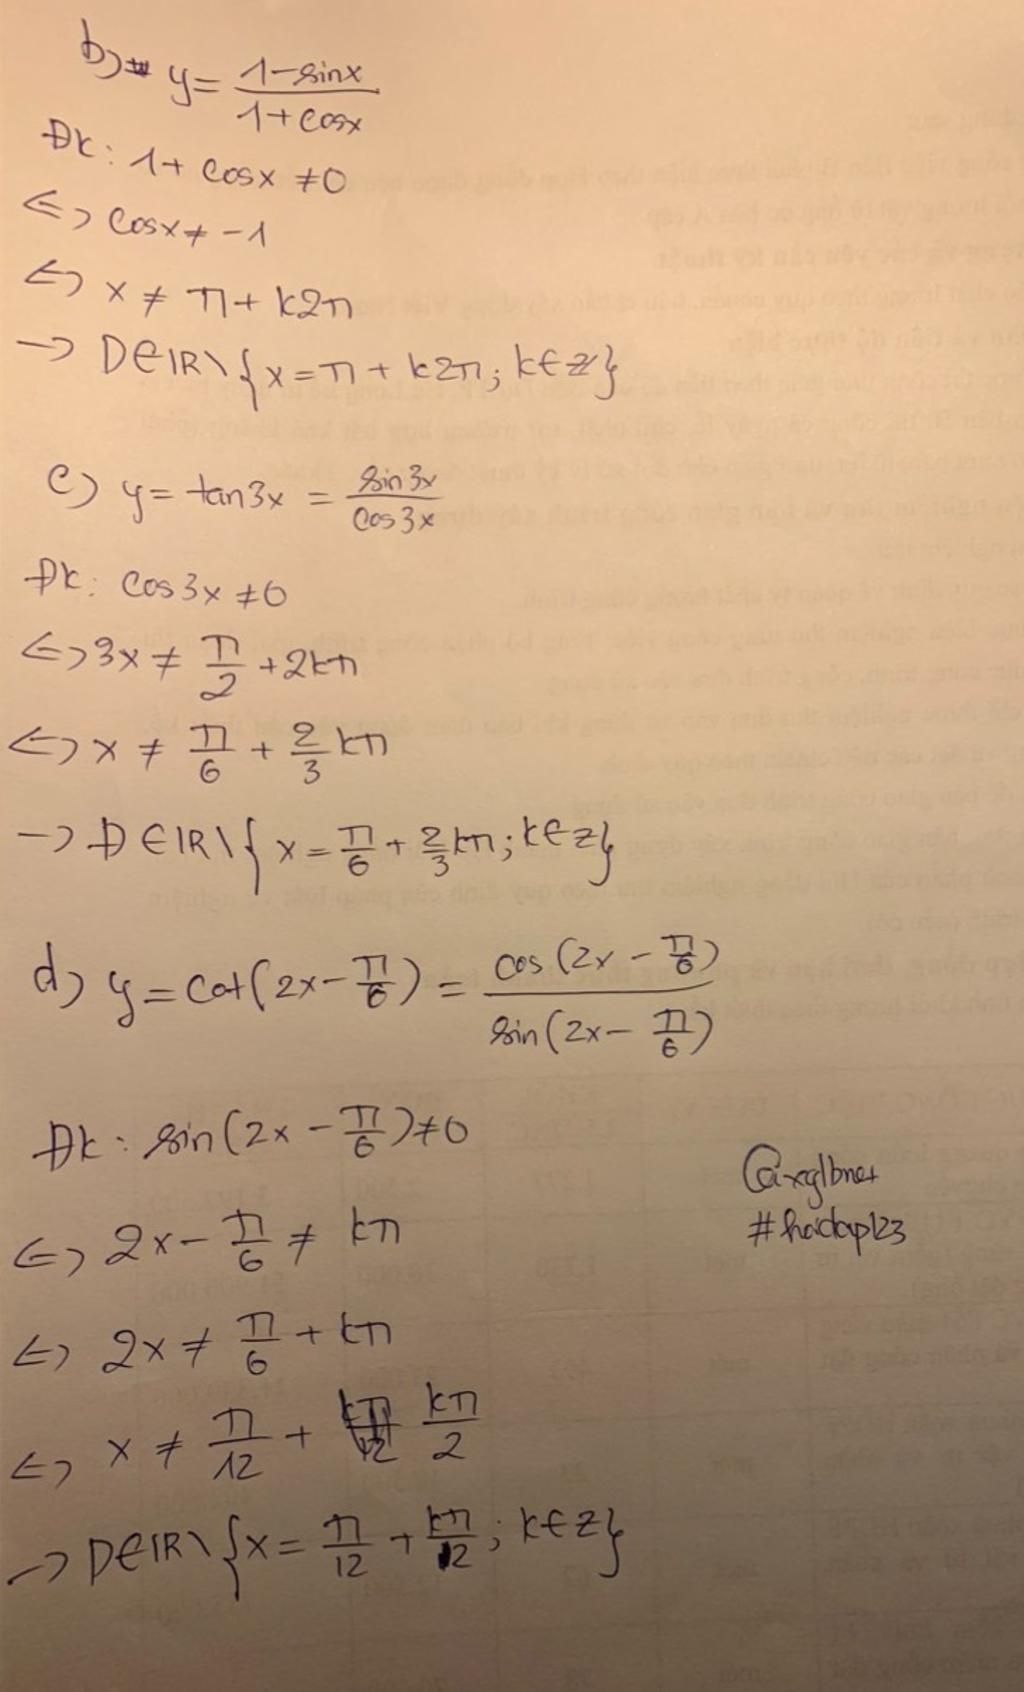 b) y = \frac{1-sinx}{1+cosx}
Đk: 1 + cosx ≠ 0
<=> cosx ≠ -1
<=> x ≠ π + k2π
-> D∈ℝ\{x = π + k2π; k∈Z}
c) y = tan3x = \frac{sin3x}{cos3x}
Đk: cos3x ≠ 0
<=> 3x ≠ \frac{π}{2} + 2kπ
<=> x ≠ \frac{π}{6} + \frac{2}{3}kπ
-> D∈ℝ\{x = \frac{π}{6} + \frac{2}{3}kπ; k∈Z}
d) y = cot(2x - \frac{π}{6}) = \frac{cos(2x - \frac{π}{6})}{sin(2x - \frac{π}{6})}
Đk: sin(2x - \frac{π}{6}) ≠ 0
<=> 2x - \frac{π}{6} ≠ kπ
<=> 2x ≠ \frac{π}{6} + kπ
<=> x ≠ \frac{π}{12} + \frac{kπ}{2}
-> D∈ℝ\{x = \frac{π}{12} + \frac{kπ}{2}; k∈Z}
#hoidap123